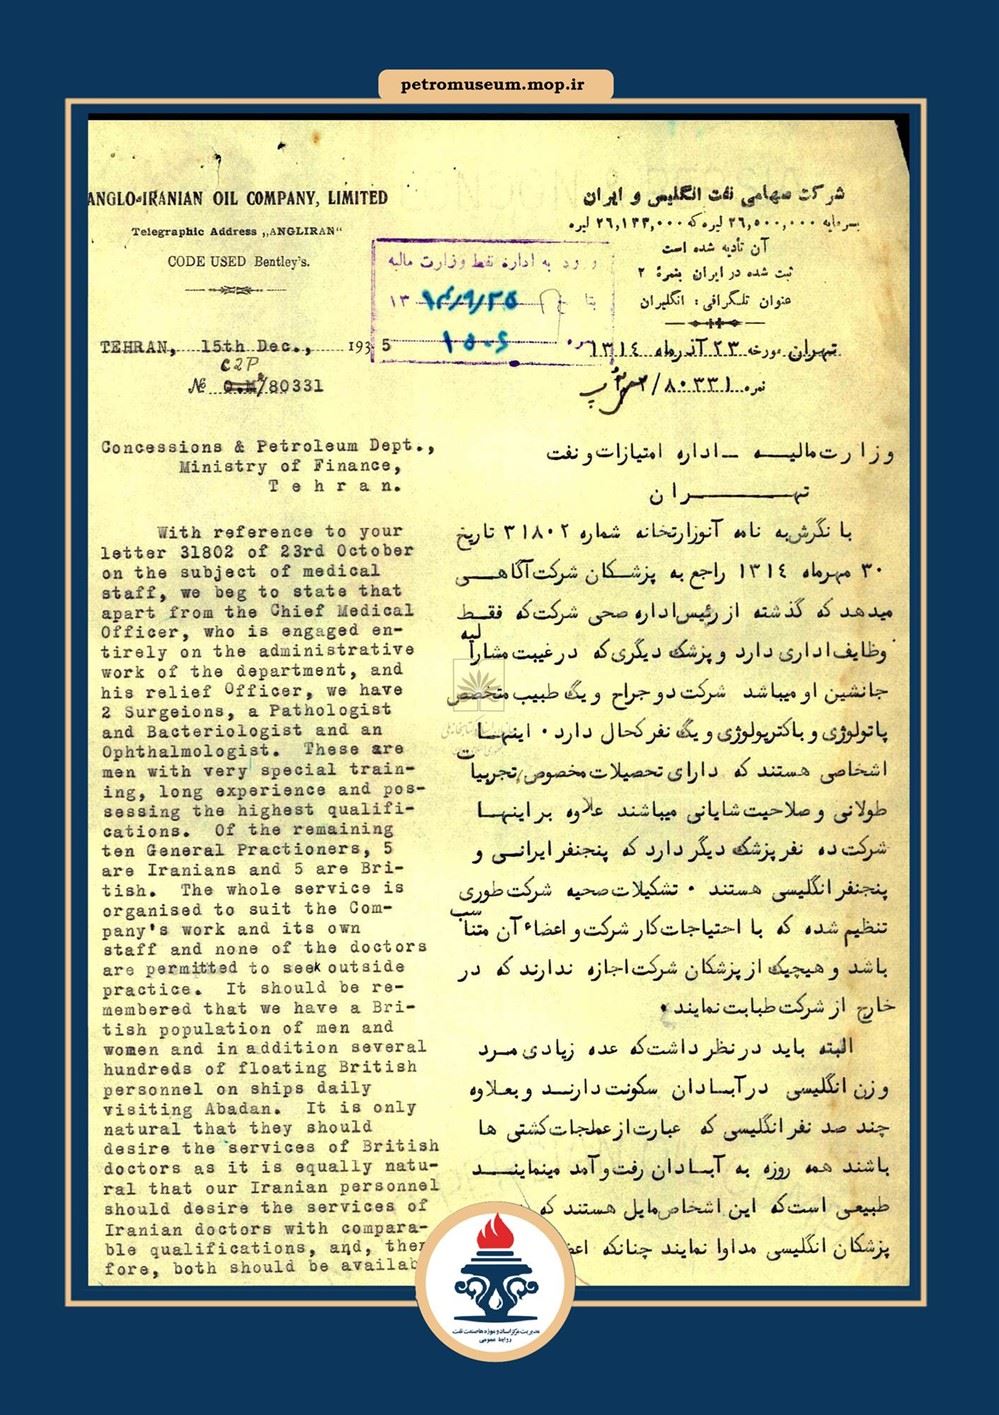 petromuseum.mop.ir
ANGLO-IRANIAN OIL COMPANY, LIMITED
Telegraphic Address „ANGLIRAN“
CODE USED Bentley's.
TEHRAN, 15th Dec., 1935
C2P
№ O.M²/80331
Concessions & Petroleum Dept.,
Ministry of Finance,
T e h r a n.
With reference to your
letter 31802 of 23rd October
on the subject of medical
staff, we beg to state that
apart from the Chief Medical
Officer, who is engaged en-
tirely on the administrative
work of the department, and
his relief Officer, we have
2 Surgeions, a Pathologist
and Bacteriologist and an
Ophthalmologist. These are
men with very special train-
ing, long experience and pos-
sessing the highest qualifi-
cations. Of the remaining
ten General Practioners, 5
are Iranians and 5 are Bri-
tish. The whole service is
organised to suit the Com-
pany's work and its own
staff and none of the doctors
are permitted to seek outside
practice. It should be re-
membered that we have a Bri-
tish population of men and
women and in addition several
hundreds of floating British
personnel on ships daily
visiting Abadan. It is only
natural that they should
desire the services of British
doctors as it is equally natu-
ral that our Iranian personnel
should desire the services of
Iranian doctors with compara-
ble qualifications, and, ther
fore, both should be availab
شرکت سهامی نفت انگلیس و ایران
بسرمایه ۲۶,۵۰۰,۰۰۰ لیره که ۲۶,۱۳۳,۰۰۰ لیره
آن تأدیه شده است
ثبت شده در ایران بنمرهٔ ۲
عنوان تلگرافی: انگلیران
ورود به اداره نفط وزارت مالیه
۱۳ ۱۴/۹/۲۵
۱۵۰۶
تهران مورخه ۲۳ آذرماه ۱۳۱۴
نمره ۸۰۳۳۱/۲
وزارت مالیه ــ اداره امتیازات و نفت
تهـــران
با نگرش به نامه آنوزارتخانه شماره ۳۱۸۰۲ تاریخ
۳۰ مهرماه ۱۳۱۴ راجع به پزشکان شرکت آگاهی
میدهد که گذشته از رئیس اداره صحی شرکت که فقط
وظایف اداری دارد و پزشک دیگری که در غیبت مشارالیه
جانشین او میباشد شرکت دو جراح و یک طبیب متخصص
پاتولوژی و باکتریولوژی و یک نفر کحال دارد ۰ اینها
اشخاصی هستند که دارای تحصیلات مخصوص، تجربیات
طولانی و صلاحیت شایانی میباشند علاوه بر اینها
شرکت ده نفر پزشک دیگر دارد که پنجنفر ایرانی و
پنجنفر انگلیسی هستند ۰ تشکیلات صحیه شرکت طوری
تنظیم شده که با احتیاجات کار شرکت و اعضاء آن متناسب
باشد و هیچیک از پزشکان شرکت اجازه ندارند که در
خارج از شرکت طبابت نمایند ۰
البته باید در نظر داشت که عده زیادی مرد
و زن انگلیسی در آبادان سکونت دارند و بعلاوه
چند صد نفر انگلیسی که عبارت از عملجات کشتی ها
باشند همه روزه به آبادان رفت و آمد مینمایند
طبیعی است که این اشخاص مایل هستند که
پزشکان انگلیسی مداوا نمایند چنانکه
مدیریت مرکز اسناد و موزه ها صنعت نفت
روابط عمومی